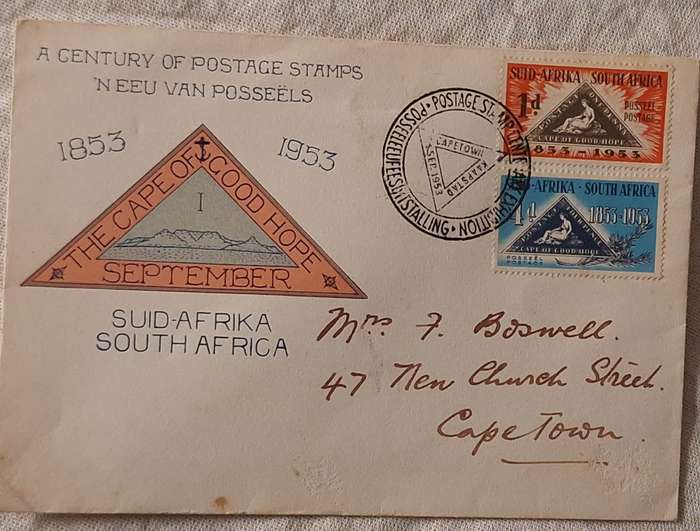 A CENTURY OF POSTAGE STAMPS
'N EEU VAN POSSEËLS
1853 1953
THE CAPE OF GOOD HOPE
I
SEPTEMBER
SUID-AFRIKA
SOUTH AFRICA
POSTAGE STAMP EXHIBITION
CAPETOWN
KAAPSTAD
1953
SUID-AFRIKA SOUTH AFRICA
1d
POSSEËL
POSTAGE
POSTAGE ONE PENNY
CAPE OF GOOD HOPE
1853-1953
-AFRIKA · SOUTH AFRICA
4d
1853-1953
POSTAGE
CAPE OF GOOD HOPE
POSSEËL
POSTAGE
Mrs F. Boswell.
47 New Church Street.
Cape Town.